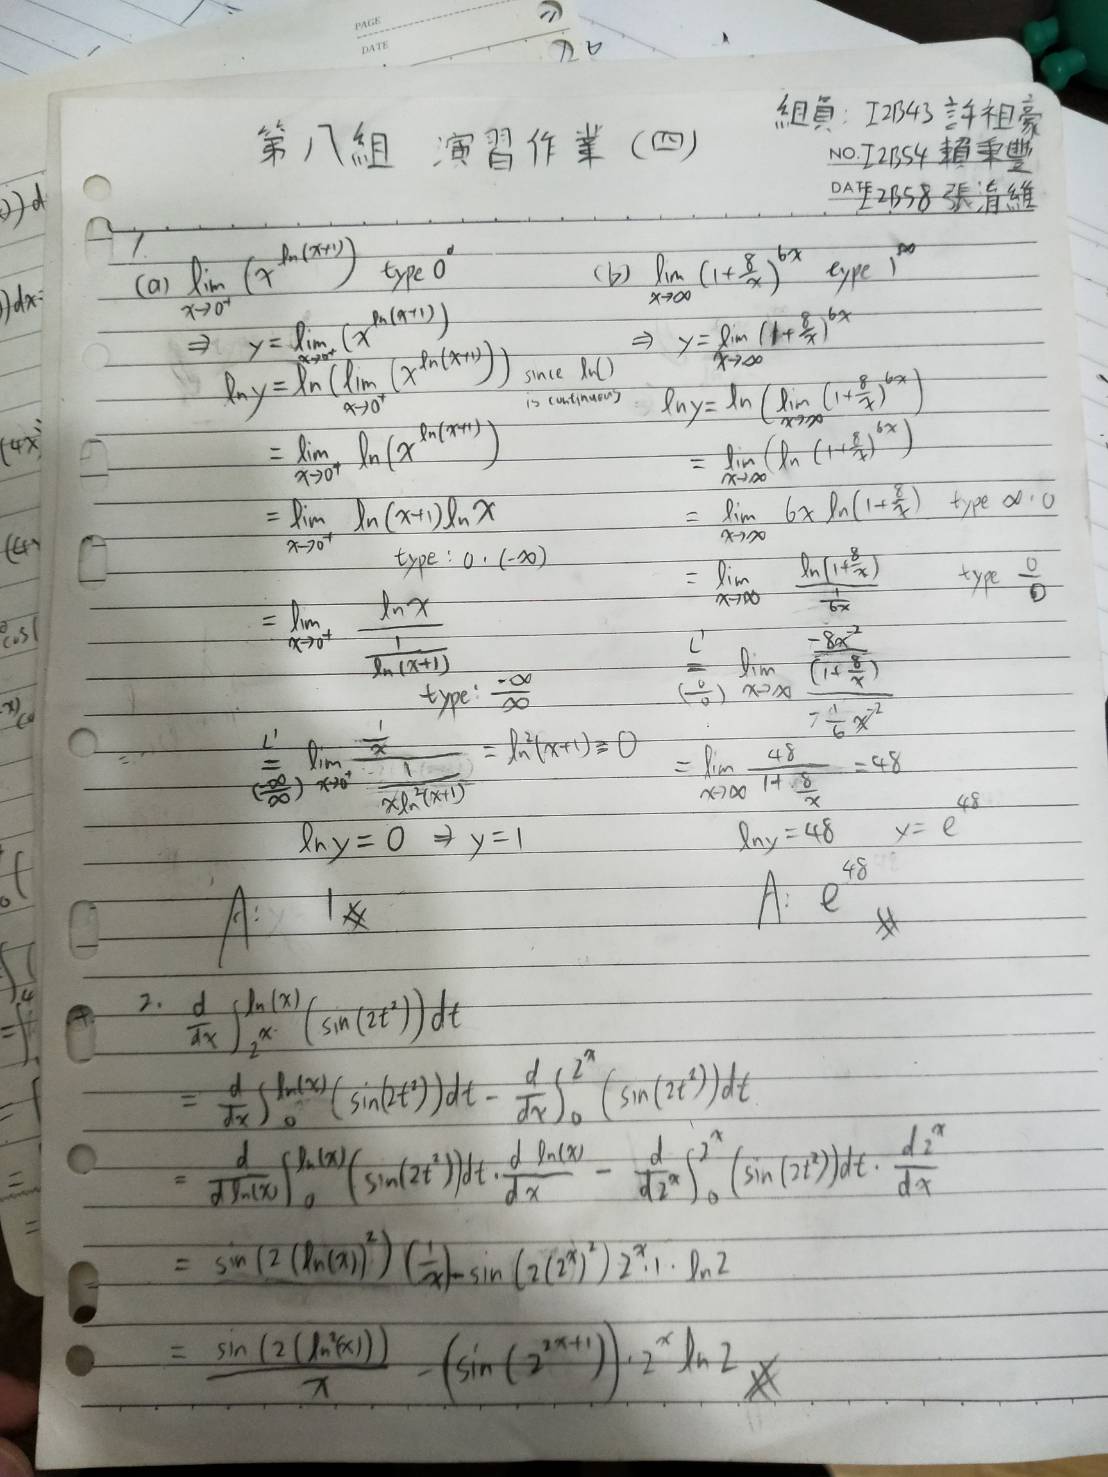 PAGE
DATE
第八組 演習作業(四)
組員: I2B43 許祖豪
NO. I2B54 賴秉豐
DATE I2B58 張淯維
1.
(a) lim x→0⁺ (x^ln(x+1)) type 0⁰
⇒ y = lim x→0⁺ (x^ln(x+1))
ln y = ln(lim x→0⁺ (x^ln(x+1))) since ln() is continuous
= lim x→0⁺ ln(x^ln(x+1))
= lim x→0⁺ ln(x+1) ln x
type: 0·(-∞)
= lim x→0⁺ ln x / (1/ln(x+1))
type: -∞/∞
L' = (-∞/∞) lim x→0⁺ (1/x) / (1/(x ln²(x+1))) = ln²(x+1) = 0
ln y = 0 ⇒ y = 1
A: 1
(b) lim x→∞ (1+8/x)^6x type 1^∞
⇒ y = lim x→∞ (1+8/x)^6x
ln y = ln(lim x→∞ (1+8/x)^6x)
= lim x→∞ (ln (1+8/x)^6x)
= lim x→∞ 6x ln(1+8/x) type ∞·0
= lim x→∞ ln(1+8/x) / (1/6x) type 0/0
L' = (0/0) lim x→∞ (-8x⁻²/(1+8/x)) / (-1/6 x⁻²)
= lim x→∞ 48/(1+8/x) = 48
ln y = 48 y = e^48
A: e^48
2. d/dx ∫_{2^x}^{ln(x)} (sin(2t²)) dt
= d/dx ∫_0^{ln(x)} (sin(2t²)) dt - d/dx ∫_0^{2^x} (sin(2t²)) dt
= d/d ln(x) ∫_0^{ln(x)} (sin(2t²)) dt · d ln(x)/dx - d/d2^x ∫_0^{2^x} (sin(2t²)) dt · d2^x/dx
= sin(2(ln(x))²)(1/x) - sin(2(2^x)²) 2^x·1·ln 2
= sin(2(ln²(x)))/x - (sin(2^{2x+1}))·2^x ln 2